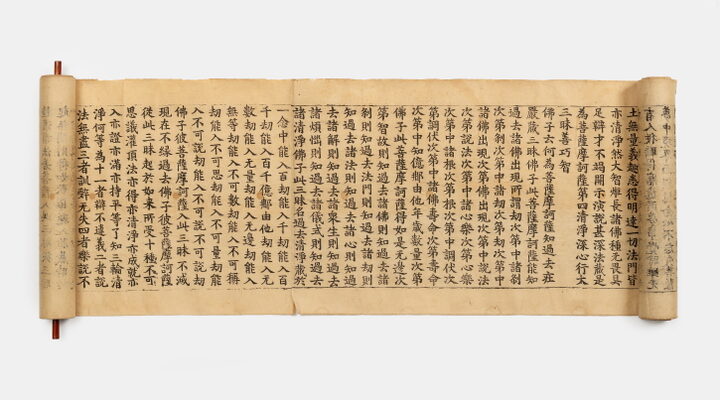 土無量義趣悉得明達一切法門皆
亦清淨然大智雉長諸佛種無畏具
足辯才不竭開示演說甚深法藏是
為菩薩摩訶薩第四清淨深心行大
三昧善巧智
佛子云何為菩薩摩訶薩知過去莊
嚴藏三昧佛子此菩薩摩訶薩能知
過去諸佛出現所謂劫次第中諸剎
次第剎次第中諸劫次第劫次第中
諸佛出現次第佛出現次第中說法
次第說法次第中諸心樂次第心樂
次第中諸根次第根次第中調伏次
第調伏次第中諸佛壽命次第壽命
次第中知億那由他年歲數量次第
佛子此菩薩摩訶薩得如是無邊次
第智故則知過去諸佛則知過去諸
剎則知過去法門則知過去諸劫則
知過去諸法則知過去諸心則知過
去諸解則知過去諸眾生則知過去
諸煩惱則知過去諸儀式則知過去
諸清淨佛子此三昧名過去清淨藏於
一念中能入百劫能入千劫能入百
千劫能入百千億那由他劫能入無
數劫能入無量劫能入無邊劫能入
無等劫能入不可數劫能入不可稱
劫能入不可思劫能入不可量劫能
入不可說劫能入不可說不可說劫
佛子彼菩薩摩訶薩入此三昧不滅
現在不緣過去佛子彼菩薩摩訶薩
從此三昧起於如來所受十種不可
思議灌頂法亦得亦清淨亦成就亦
入亦證亦滿亦持平等了知三輪清
淨何等為十一者辯不違義二者說
法無盡三者訓辭無失四者樂說不